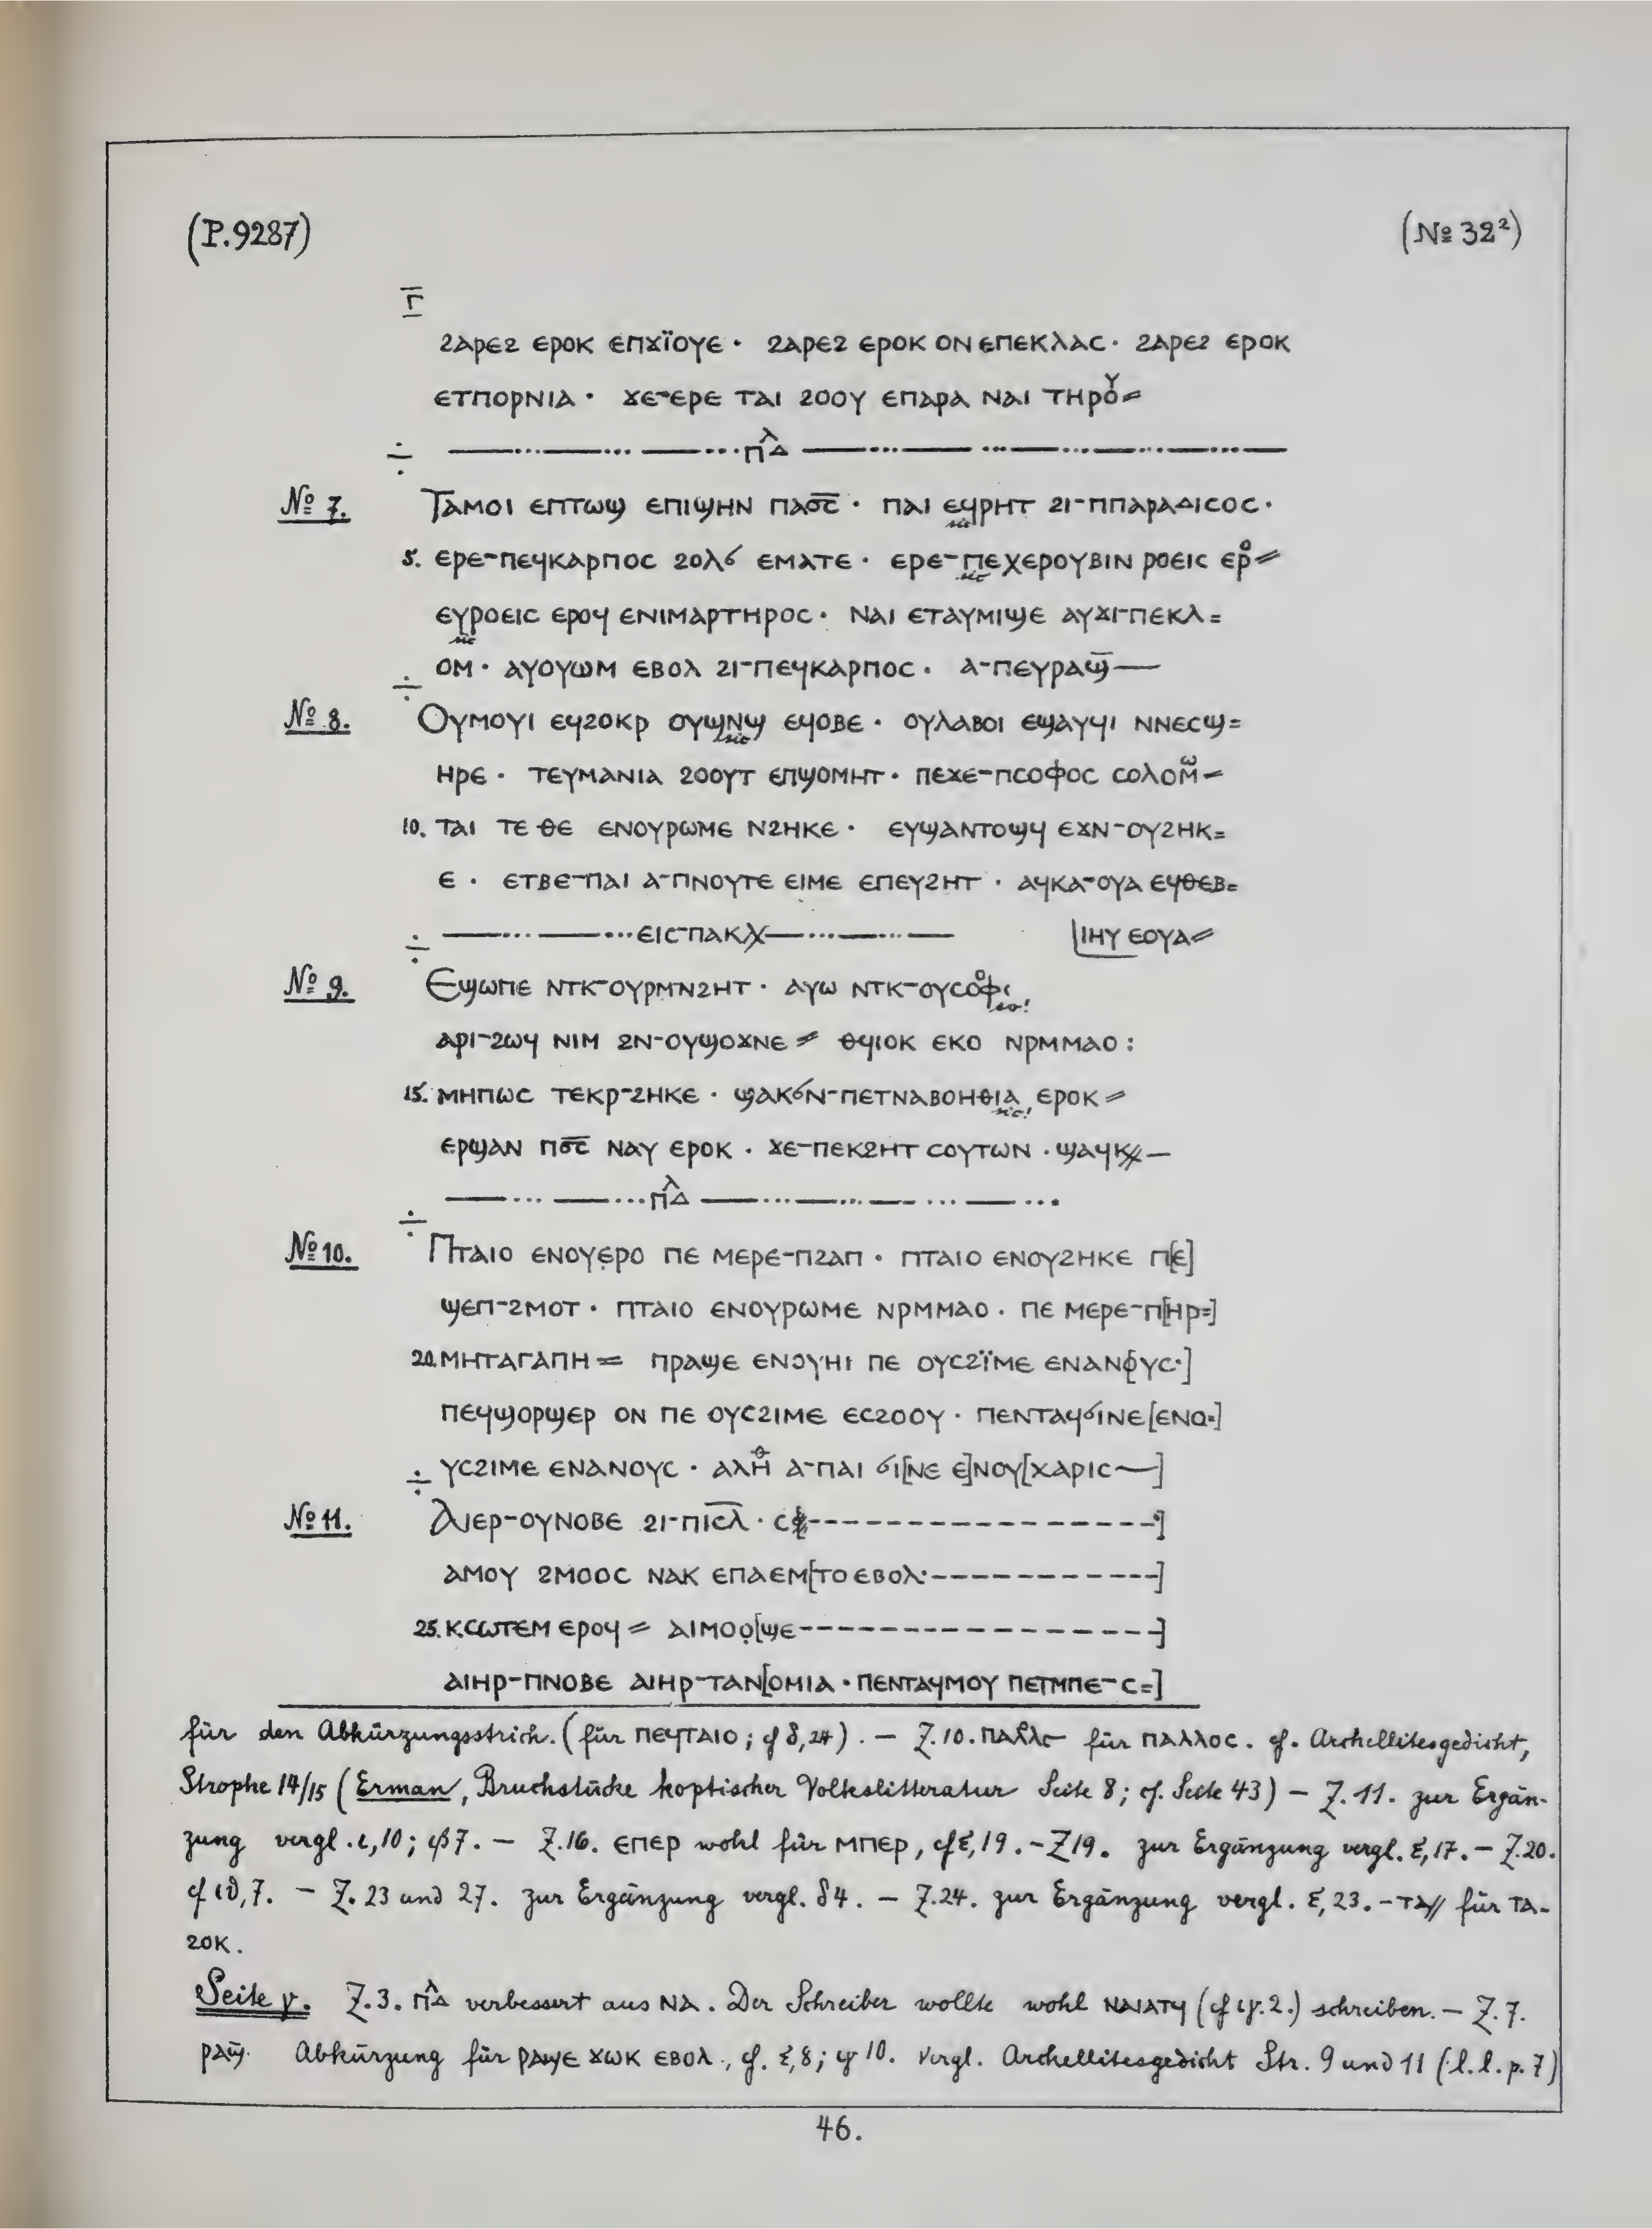 (P.9287) (№ 32²)
Γ̅
ϩⲁⲣⲉϩ ⲉⲣⲟⲕ ⲉⲡϫⲓ̈ⲟⲩⲉ · ϩⲁⲣⲉϩ ⲉⲣⲟⲕ ⲟⲛ ⲉⲡⲉⲕⲗⲁⲥ · ϩⲁⲣⲉϩ ⲉⲣⲟⲕ
ⲉⲧⲡⲟⲣⲛⲓⲁ · ϫⲉ-ⲉⲣⲉ ⲧⲁⲓ ϩⲟⲟⲩ ⲉⲡⲁⲣⲁ ⲛⲁⲓ ⲧⲏⲣⲟⲩ
ⲡⲇⲗ
№ 7. Ⲧⲁⲙⲟⲓ ⲉⲡⲧⲱϣ ⲉⲡⲓϣⲏⲛ ⲡⲁϭ̅ⲥ̅ · ⲡⲁⲓ ⲉϥⲣⲏⲧ ϩⲓ-ⲡⲡⲁⲣⲁⲇⲓⲥⲟⲥ ·
sic
5. ⲉⲣⲉ-ⲡⲉϥⲕⲁⲣⲡⲟⲥ ϩⲟⲗϭ ⲉⲙⲁⲧⲉ · ⲉⲣⲉ-ⲡⲉⲭⲉⲣⲟⲩⲃⲓⲛ ⲣⲟⲉⲓⲥ ⲉⲣⲟ
sic
ⲉⲩⲣⲟⲉⲓⲥ ⲉⲣⲟϥ ⲉⲛⲓⲙⲁⲣⲧⲏⲣⲟⲥ · ⲛⲁⲓ ⲉⲧⲁⲩⲙⲓϣⲉ ⲁⲩϫⲓ-ⲡⲉⲕⲗ=
sic
ⲟⲙ · ⲁⲩⲟⲩⲱⲙ ⲉⲃⲟⲗ ϩⲓ-ⲡⲉϥⲕⲁⲣⲡⲟⲥ · ⲁ-ⲡⲉⲩⲣⲁϣ̅
№ 8. Ⲟⲩⲙⲟⲩⲓ ⲉϥϩⲟⲕⲣ ⲟⲩϣⲛϣ ⲉϥⲟⲃⲉ · ⲟⲩⲗⲁⲃⲟⲓ ⲉϣⲁⲩϥⲓ ⲛⲛⲉⲥϣ=
sic
ⲏⲣⲉ · ⲧⲉⲩⲙⲁⲛⲓⲁ ϩⲟⲟⲩⲧ ⲉⲡϣⲟⲙⲏⲧ · ⲡⲉϫⲉ-ⲡⲥⲟⲫⲟⲥ ⲥⲟⲗⲟⲙⲱ
10. ⲧⲁⲓ ⲧⲉ ⲑⲉ ⲉⲛⲟⲩⲣⲱⲙⲉ ⲛϩⲏⲕⲉ · ⲉⲩϣⲁⲛⲧⲟϣϥ ⲉϫⲛ-ⲟⲩϩⲏⲕ=
ⲉ · ⲉⲧⲃⲉ-ⲡⲁⲓ ⲁ-ⲡⲛⲟⲩⲧⲉ ⲉⲓⲙⲉ ⲉⲡⲉⲩϩⲏⲧ · ⲁϥⲕⲁ-ⲟⲩⲁ ⲉϥⲑⲉⲃ=
ⲉⲓⲥ-ⲡⲁⲕⲗ ⲓⲏⲩ ⲉⲟⲩⲁ
№ 9. Ⲉϣⲱⲡⲉ ⲛⲧⲕ-ⲟⲩⲣⲙⲛϩⲏⲧ · ⲁⲩⲱ ⲛⲧⲕ-ⲟⲩⲥⲟⲫⲟ
so!
ⲁⲣⲓ-ϩⲱϥ ⲛⲓⲙ ϩⲛ-ⲟⲩϣⲟϫⲛⲉ ⲑϥⲓⲟⲕ ⲉⲕⲟ ⲛⲣⲙⲙⲁⲟ :
15. ⲙⲏⲡⲱⲥ ⲧⲉⲕⲣ-ϩⲏⲕⲉ · ϣⲁⲕϭⲛ-ⲡⲉⲧⲛⲁⲃⲟⲏⲑⲓⲁ ⲉⲣⲟⲕ
sic!
ⲉⲣϣⲁⲛ ⲡϭ̅ⲥ̅ ⲛⲁⲩ ⲉⲣⲟⲕ · ϫⲉ-ⲡⲉⲕϩⲏⲧ ⲥⲟⲩⲧⲱⲛ · ϣⲁϥⲕ//
ⲡⲇⲗ
№ 10. Ⲡⲧⲁⲓⲟ ⲉⲛⲟⲩⲉⲣⲟ ⲡⲉ ⲙⲉⲣⲉ-ⲡϩⲁⲡ · ⲡⲧⲁⲓⲟ ⲉⲛⲟⲩϩⲏⲕⲉ ⲡ[ⲉ]
ϣⲉⲡ-ϩⲙⲟⲧ · ⲡⲧⲁⲓⲟ ⲉⲛⲟⲩⲣⲱⲙⲉ ⲛⲣⲙⲙⲁⲟ · ⲡⲉ ⲙⲉⲣⲉ-ⲡ[ⲏⲣ=]
20. ⲙⲏⲧⲁⲅⲁⲡⲏ = ⲡⲣⲁϣⲉ ⲉⲛⲟⲩⲏⲓ ⲡⲉ ⲟⲩⲥϩⲓ̈ⲙⲉ ⲉⲛⲁⲛ[ⲟⲩⲥ·]
ⲡⲉϥϣⲟⲣϣⲉⲣ ⲟⲛ ⲡⲉ ⲟⲩⲥϩⲓⲙⲉ ⲉⲥϩⲟⲟⲩ · ⲡⲉⲛⲧⲁϥϭⲓⲛⲉ [ⲉⲛⲟ=]
ⲩⲥϩⲓⲙⲉ ⲉⲛⲁⲛⲟⲩⲥ · ⲁⲗⲏⲑ ⲁ-ⲡⲁⲓ ϭⲓ[ⲛⲉ ⲉ]ⲛⲟⲩ[ⲭⲁⲣⲓⲥ—]
№ 11. Ⲁⲓⲉⲣ-ⲟⲩⲛⲟⲃⲉ ϩⲓ-ⲡⲓ̅ⲥ̅ⲗ̅ · ⲥ[----------------·]
ⲁⲙⲟⲩ ϩⲙⲟⲟⲥ ⲛⲁⲕ ⲉⲡⲁⲉⲙ[ⲧⲟ ⲉⲃⲟⲗ·-----------]
25. ⲕⲥⲱⲧⲉⲙ ⲉⲣⲟϥ = ⲁⲓⲙⲟⲟ[ϣⲉ-----------------]
ⲁⲓⲏⲣ-ⲡⲛⲟⲃⲉ ⲁⲓⲏⲣ-ⲧⲁⲛ[ⲟⲙⲓⲁ · ⲡⲉⲛⲧⲁϥⲙⲟⲩ ⲡⲉⲧⲙⲡⲉ-ⲥ=]
für den Abkürzungsstrich. (für ⲡⲉϥⲧⲁⲓⲟ; cf δ,24). — Z.10. für ⲡⲁⲗⲗⲟⲥ. cf. Archellitesgedicht,
Strophe 14/15 (Erman, Bruchstücke koptischer Volkslitteratur Seite 8; cf. Seite 43) — Z. 11. zur Ergän-
zung vergl. ι,10; ιβ 7. — Z.16. ⲉⲡⲉⲣ wohl für ⲙⲡⲉⲣ, cf ξ,19. — Z 19. zur Ergänzung vergl. ξ,17. — Z.20.
cf ιδ,7. — Z. 23 und 27. zur Ergänzung vergl. δ 4. — Z.24. zur Ergänzung vergl. ξ,23. — ⲧⲁ// für ⲧⲁ-
ϩⲟⲕ.
Seite γ. Z.3. ⲡⲇⲗ verbessert aus ⲛⲁ. Der Schreiber wollte wohl ⲛⲁⲓⲁⲧϥ (cf ιγ.2.) schreiben. — Z. 7.
ⲣⲁϣ̅ Abkürzung für ⲣⲁϣⲉ ϫⲱⲕ ⲉⲃⲟⲗ, cf. ξ,8; ιγ 10. Vergl. Archellitesgedicht Str. 9 und 11 (l. l. p. 7)
46.